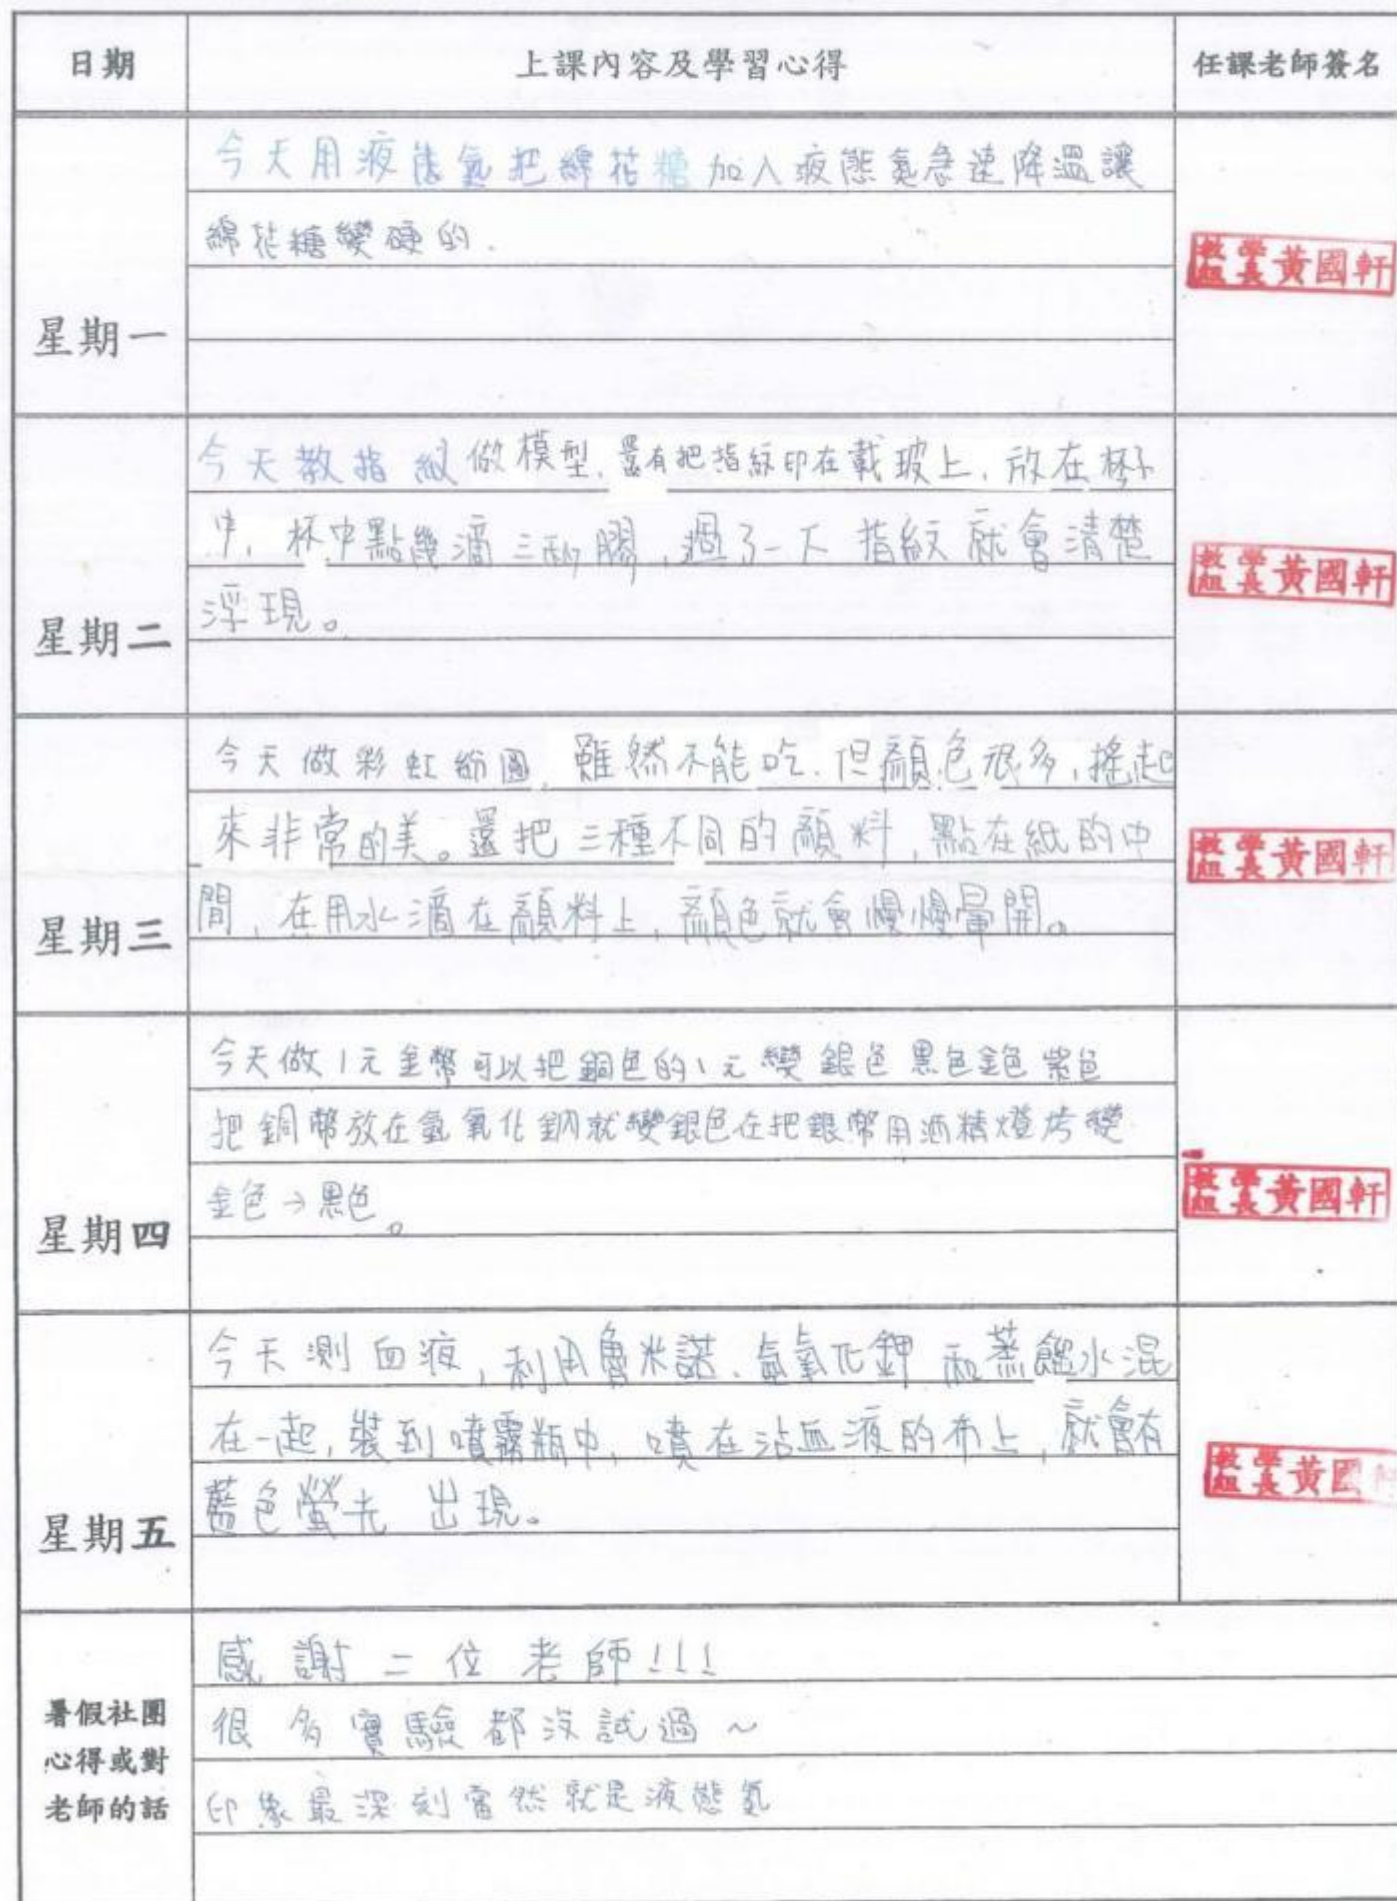 日期 上課內容及學習心得 任課老師簽名
今天用液態氮把綿花糖加入液態氮急速降溫讓
綿花糖變硬的.
星期一
教學組長黃國軒
今天教指紋做模型、還有把指紋印在載玻上,放在杯子
中,杯中點幾滴三秒膠,過了一下指紋就會清楚
浮現。
星期二
教學組長黃國軒
今天做彩虹粉圓,雖然不能吃,但顏色很多,搖起
來非常的美。還把三種不同的顏料,點在紙的中
間,在用水滴在顏料上,顏色就會慢慢暈開。
星期三
教學組長黃國軒
今天做1元金幣可以把銅色的1元變銀色黑色金色紫色
把銅幣放在氫氧化鈉就變銀色在把銀幣用酒精燈烤變
金色→黑色。
星期四
教學組長黃國軒
今天測血液,利用魯米諾、氫氧化鉀和蒸餾水混
在一起,裝到噴霧瓶中,噴在沾血液的布上,就會有
藍色螢光出現。
星期五
教學組長黃國軒
暑假社團
心得或對
老師的話
感謝二位老師!!!
很多實驗都沒試過~
印象最深刻當然就是液態氮